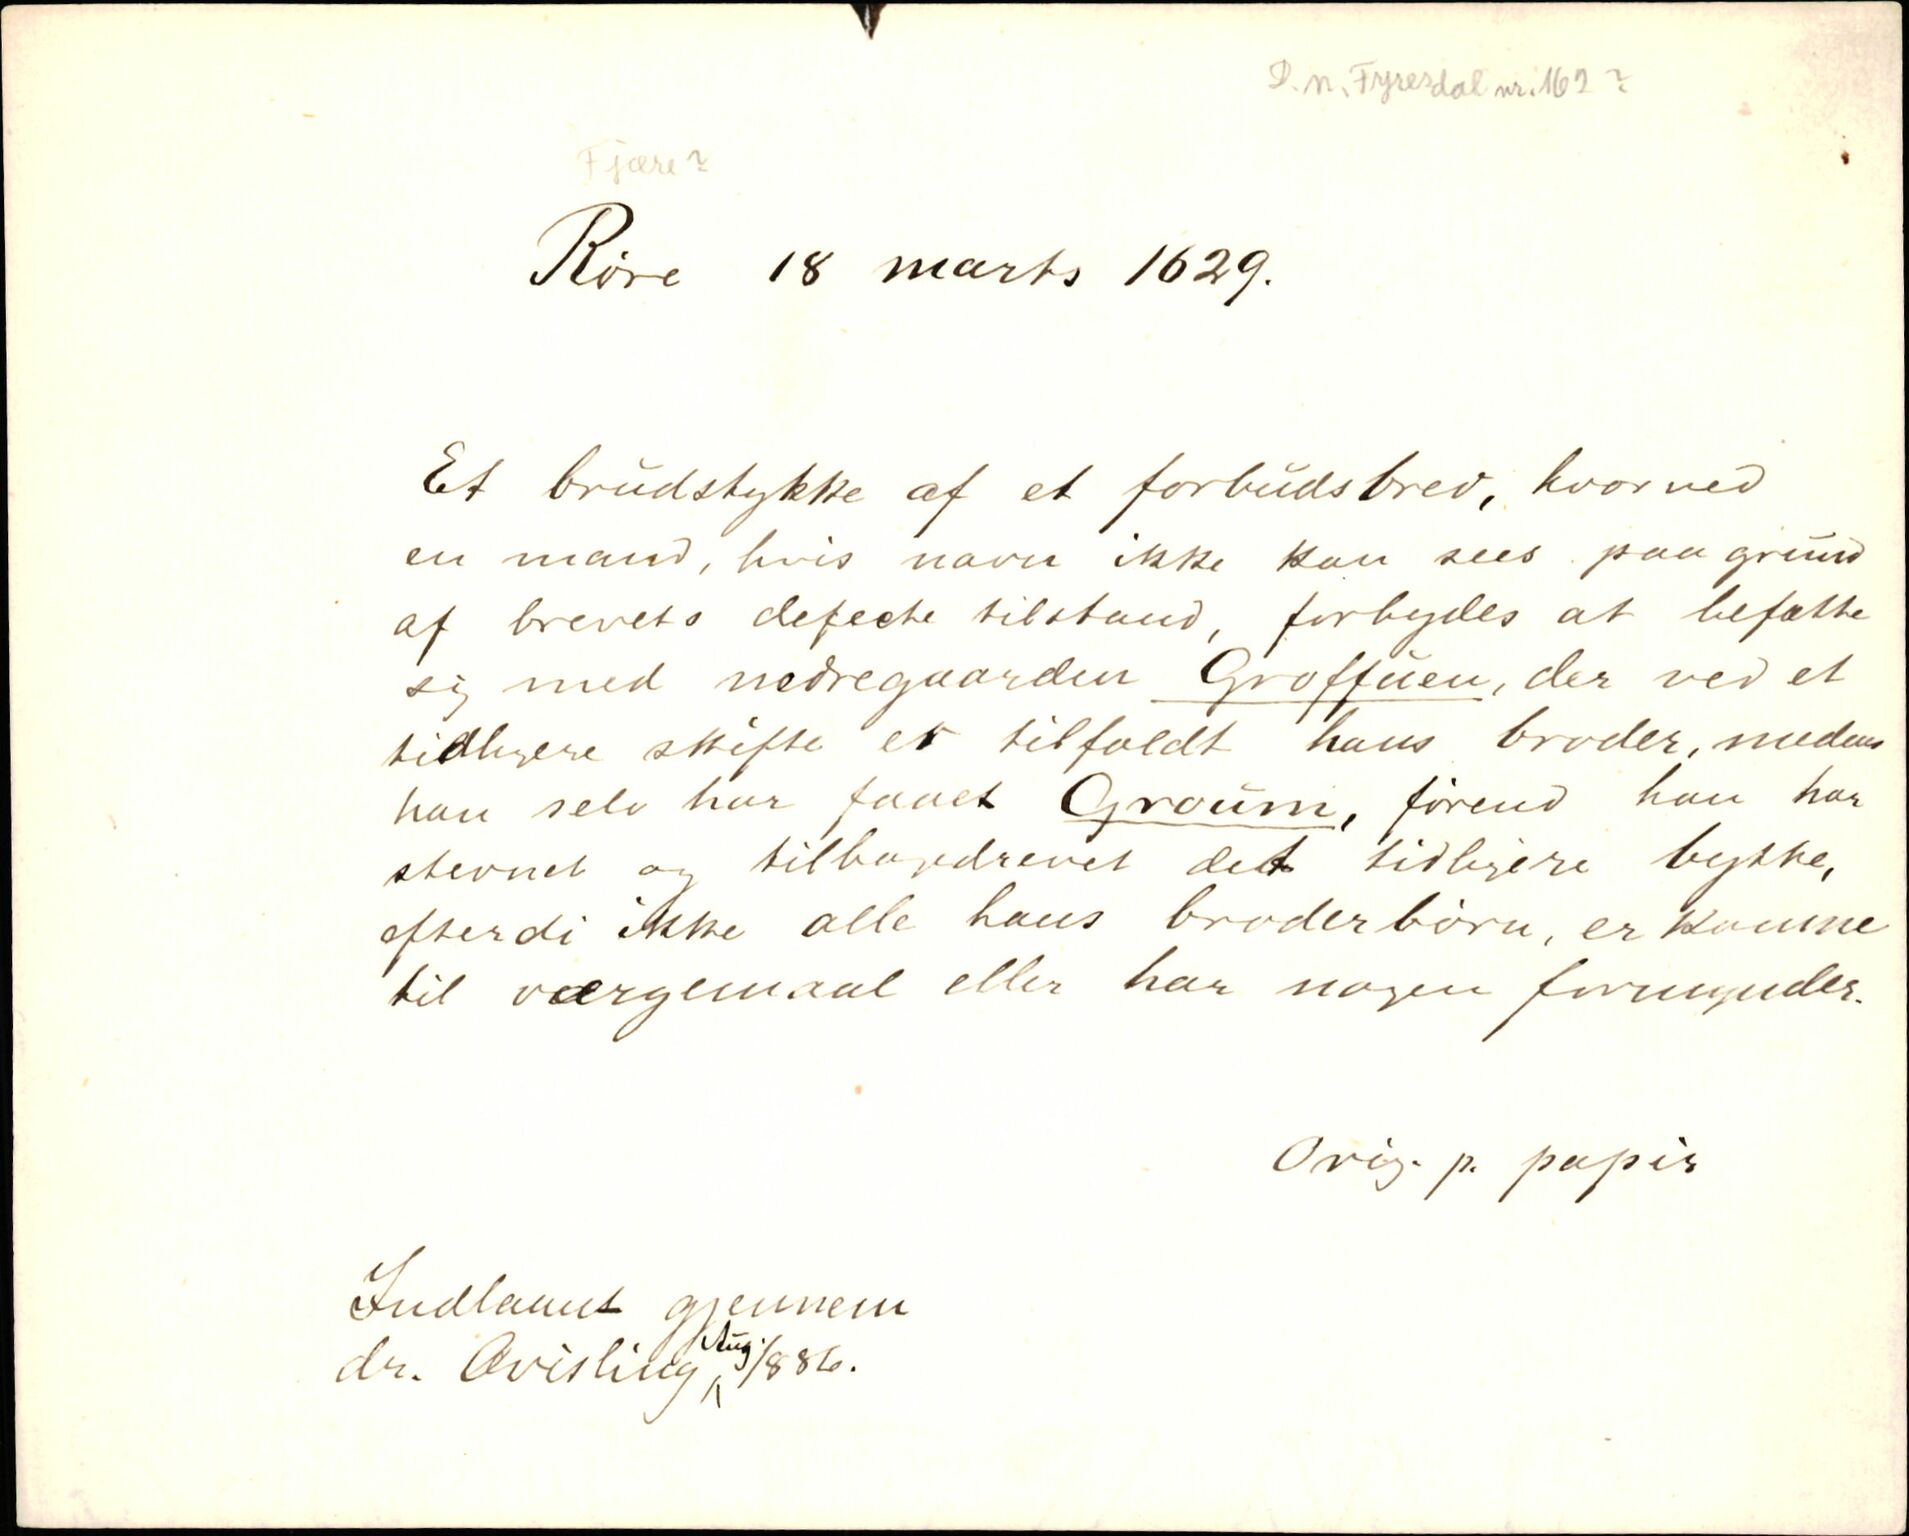 D. N. Fyresdal nr. 162?
Fjære?
Röre 18 marts 1629.
Et brudstykke af et forbudsbrev, hvorved
en mand, hvis navn ikke kan sees paa grund
af brevets defecte tilstand, forbydes at befatte
sig med nedregaarden Groffuen, der ved et
tidligere skifte er tilfaldt hans broder, medens
han selv har faaet Groum, förend han har
stevnet og tilbagedrevet det tidligere bytte,
efterdi ikke alle hans broderbörn, er komne
til værgemaal eller har nogen formynder.
Orig. p. papir
Indlaant gjennem
dr. Qvisling, Aug. 1886.